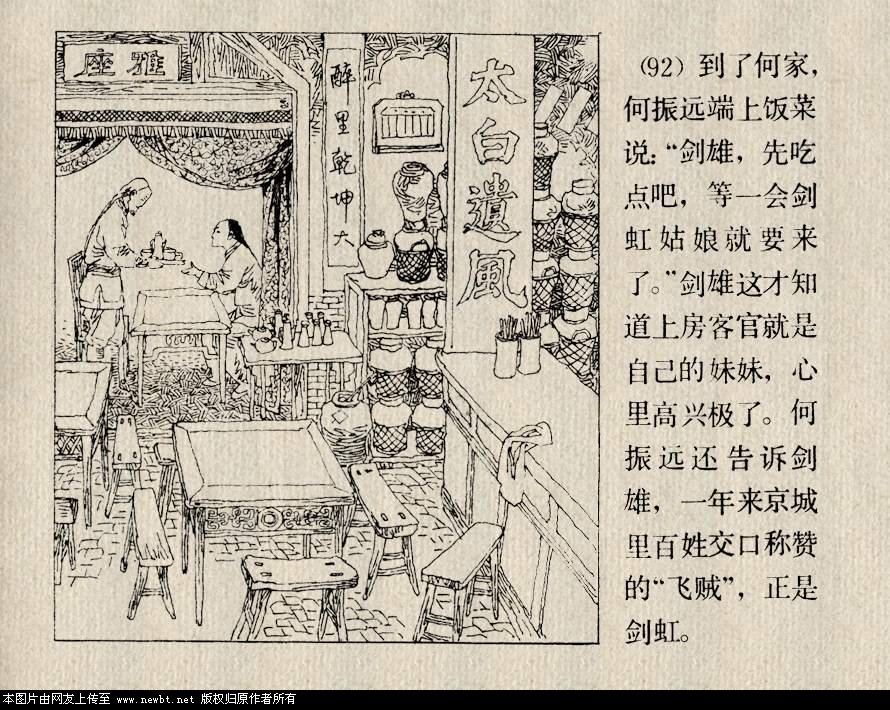 雅座
醉里乾坤大
太白遺風
（92）到了何家，
何振远端上饭菜
说：“剑雄，先吃
点吧，等一会剑
虹姑娘就要来
了。”剑雄这才知
道上房客官就是
自己的妹妹，心
里高兴极了。何
振远还告诉剑
雄，一年来京城
里百姓交口称赞
的“飞贼”，正是
剑虹。
本图片由网友上传至 www.newbt.net 版权归原作者所有